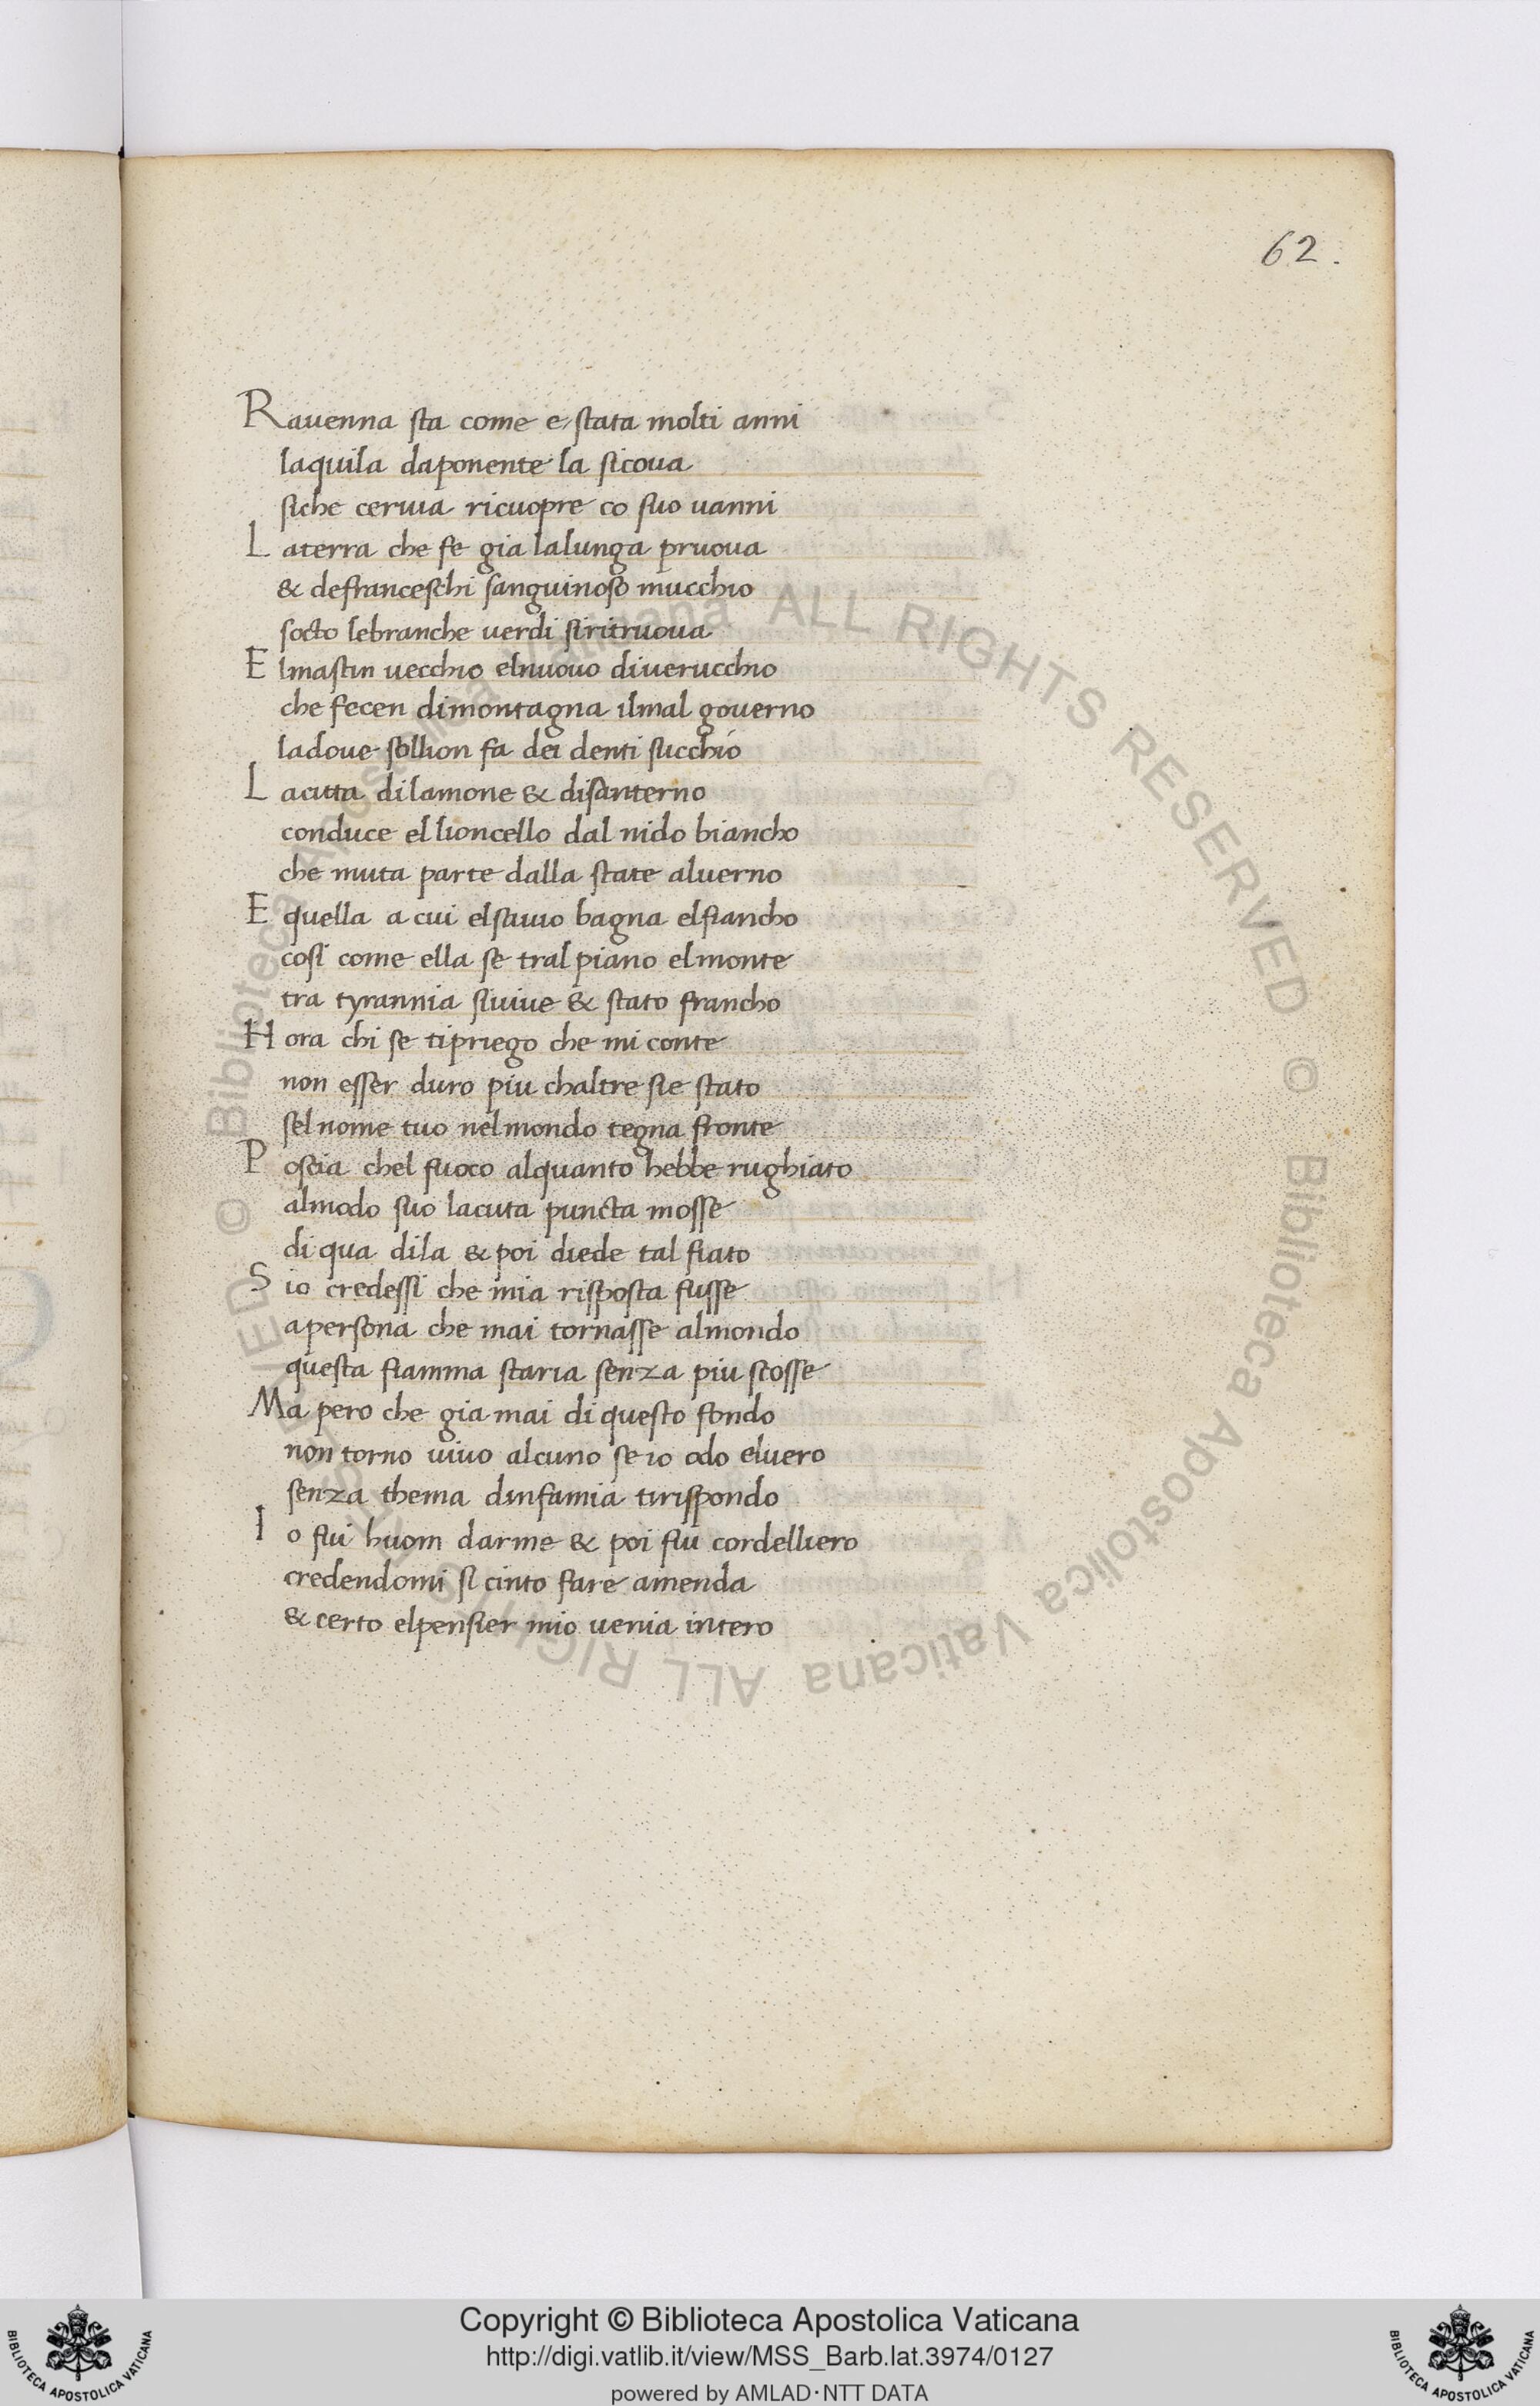 62.
Rauenna sta come e stata molti anni
laquila daponente la sicoua
siche ceruia ricuopre co suo uanni
Laterra che fe gia lalunga pruoua
& defranceschi sanguinoso mucchio
socto lebranche uerdi siritruoua
Elmastin uecchio elnuouo diuerucchio
che fecen dimontagna ilmal gouerno
ladoue sollion fa dei denti succhio
Lacitta dilamone & disanterno
conduce el lioncello dal nido biancho
che muta parte dalla state aluerno
E quella a cui elsauio bagna elfiancho
cosi come ella se tral piano elmonte
tra tyrannia siuiue & stato francho
Hora chi se tipriego che mi conte
non esser duro piu chaltre sie stato
sel nome tuo nelmondo tegna fronte
Poscia chel fuoco alquanto hebbe rughiato
almodo suo lacuta puncta mosse
di qua dila & poi diede tal fiato
Sio credessi che mia risposta fusse
apersona che mai tornasse almondo
questa fiamma staria senza piu scosse
Ma pero che gia mai di questo fondo
non torno uiuo alcuno se io odo eluero
senza thema dinfamia tirispondo
Io fui huom darme & poi fui cordelliero
credendomi si cinto fare amenda
& certo elpensier mio uenia intero
© Biblioteca Apostolica Vaticana ALL RIGHTS RESERVED © Biblioteca Apostolica Vaticana ALL RIGHTS RESERVED
Copyright © Biblioteca Apostolica Vaticana
http://digi.vatlib.it/view/MSS_Barb.lat.3974/0127
powered by AMLAD·NTT DATA
BIBLIOTECA APOSTOLICA VATICANA
BIBLIOTECA APOSTOLICA VATICANA